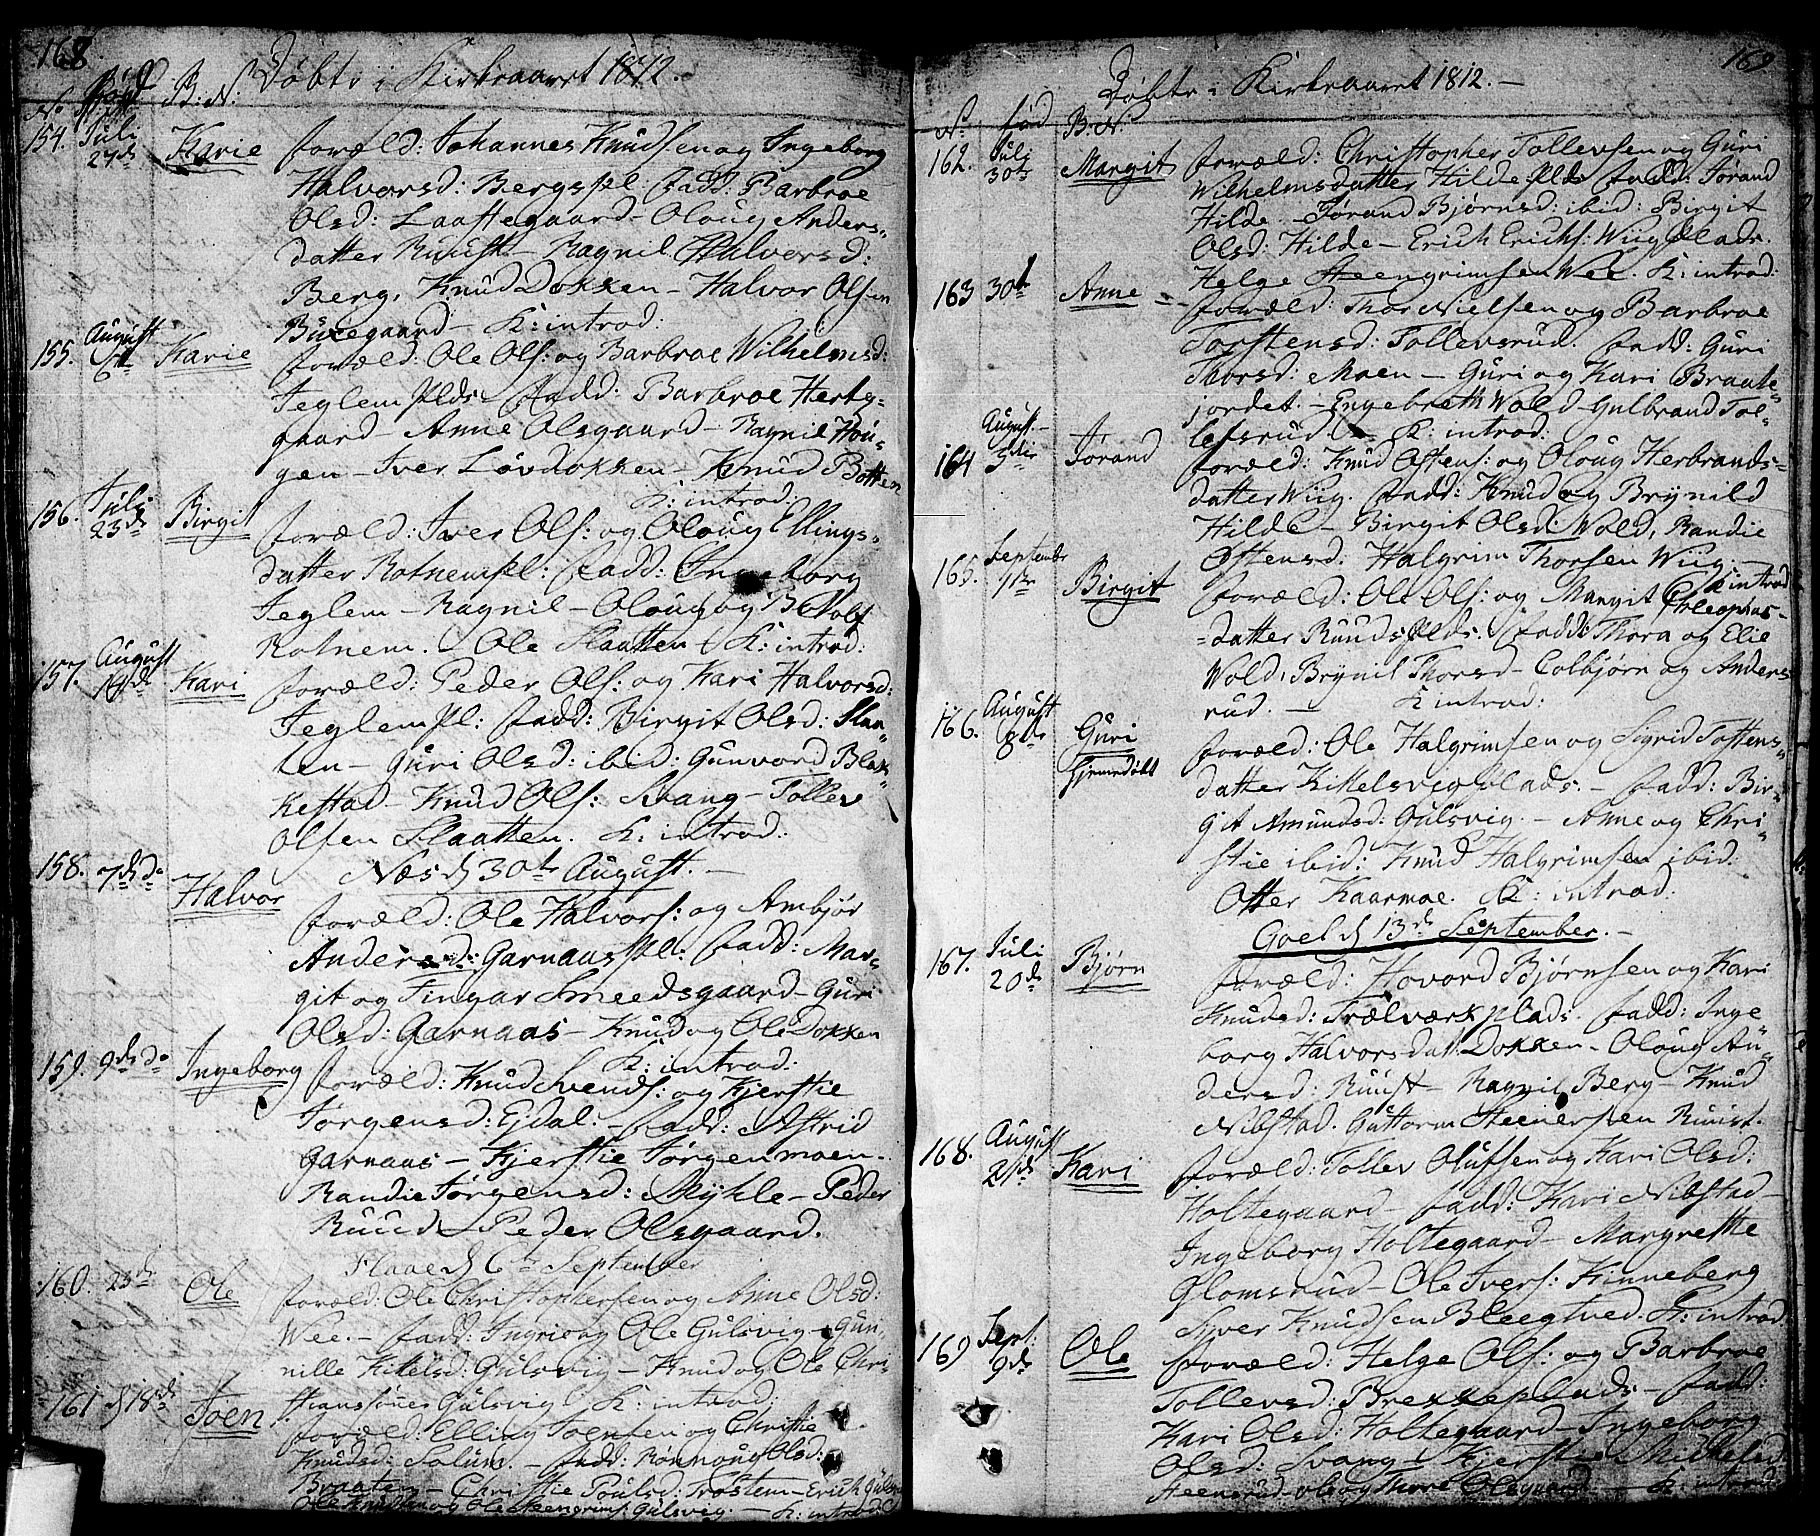 168.
Døbte i Kirkeaaret 1812.
No Fød B: N:
154. Juli 27de Karie Foræld: Johannes Knudsen og Ingeborg
Halvorsd: Bergspl: Fadd: Barbroe
Olsd: Laaftegaard - Oloug Anders-
datter Ruust - Ragnil Halvorsd:
Berg, Knud Dokken - Halvor Olsen
Buxegaard - K: introd:
155. August 6te Karie Foræld: Ole Ols: og Barbroe Wilhelmsd:
Jeglem Plds - Fadd: Barbroe Herby-
gaard - Anne Olsgaard - Ragnil Hou-
gen - Iver Løvdokken - Knud Botten
K: introd:
156. Juli 23de Birgit Foræld: Iver Ols: og Oloug Ellings-
datter Rotnempl: Fadd: Ingeborg
Jeglem - Ragnil - Oloug og
Rotnem. Ole Slaatten K: introd:
157. August Kari Foræld: Peder Ols: og Kari Halvorsd:
Jeglempl: Fadd: Birgit Olsd: Slaa-
ten - Guri Olsd: ibid: Gunvord Blak-
kestad - Knud Ols: Svang - Tollev
Olsen Slaatten. K: introd:
Næs d 30te August. -
158. 7de do Halvor Foræld: Ole Halvors: og Ambjør
Andersd: Garnaaspl: Fadd: Mar-
git og Fingar Smeedsgaard - Guri
Olsd: Garnaas - Knud og Ole Dokken
K: introd:
159. 9de do Ingeborg Foræld: Knud Svends: og Kjerstie
Jørgensd: Ejdal. - Fadd: Astrid
Garnaas - Kjerstie Jørgenmoen -
Randie Jørgensd: Myhle - Peder
Ruud - Peder Olsgaard.
Flaae d 6te September
160. 23de Ole Foræld: Ole Christophersen og Anne Olsd:
Wee. - Fadd: Ingrie og Ole Gulsvig - Gun-
nille Kikelsd: Gulsvig - Knud og Ole Chri-
stianssønner Gulsvig K: introd:
161 d 18de Joen Foræld: Elling Joensen og Christie
Knudsd: Solum. - Fadd: Rønnoug Olsd:
Braaten - Christie Poulsd: Trostem - Erich Gulsvig
Ole Knudsen og Ole Steengrims: Gulsvig. - K: introd:
169
Døbte i Kirkeaaret 1812. -
No fød B: N:
162. Juli 30te Margit Foræld: Christopher Tollevsen og Guri
Wilhelmsdatter Hilde Plds Fadd: Jørand
Hilde. - Jørand Bjørnsd: ibid: Birgit
Olsd: Hilde - Erich Erichs: Wiig Plads.
Helge Steengrimsen Wee. K: introd:
163 30te Anne Foræld: Thor Nielsen og Barbroe
Torstensd: Tollevsrud. Fadd: Guri
Thorsd: Moen - Guri og Kari Braate-
jordet. - Engebreth Wold - Gulbrand Tol-
lefsrud. K: introd:
164 August 3die Jørand Foræld: Knud Østens: og Oloug Herbrands-
datter Wiig. Fadd: Knud og Brynild
Hilde - Birgit Olsd: Wold, Randie
Østensd: Halgrim Thorsen Wiig. -
K introd
165. September 1te Birgit Foræld: Ole Ols: og Margit Cleophas-
datter Ruudsplds: Fadd: Thora og Elie
Wold, Brynil Thorsd - Colbjørn og Anders
rud. - K introd:
166. August 8de Guri Hjemedøbt Foræld: Ole Halgrimsen og Sigrid Tostens-
datter Kikelsvigplads. - Fadd: Bir-
git Amundsd: Gulsvig. - Anne og Chri-
stie ibid: Knud Halgrimsen ibid:
Otter Kaarmoe. K: introd:
Goel d 13de September. -
167. Juli 20de Bjørn Foræld: Hovord Bjørnsen og Kari
Knudsd: Trælværkplads. Fadd: Inge
borg Halvorsdat: Dokken - Oloug An-
dersd: Ruust - Ragnil Berg - Knud
Nibstad. Guttorm Steenersen Ruust.
168. August 21de Kari Foræld: Tollev Olufsen og Kari Olsd:
Holtegaard - Fadd: Kari Nibstad -
Ingeborg Holtegaard - Margrethe
Glomsrud - Ole Ivers: Kinneberg
Syver Knudsen Bleegtved. K: introd
169 Sept: 9de Ole Foræld: Helge Ols: og Barbroe
Tollevsd: Brekkeplads - Fadd:
Kari Olsd: Holtegaard - Ingeborg
Olsd: Svang - Kjerstie Mikkelsd:
Steensrud - Ole og Thore Olsgaard - K: introd: